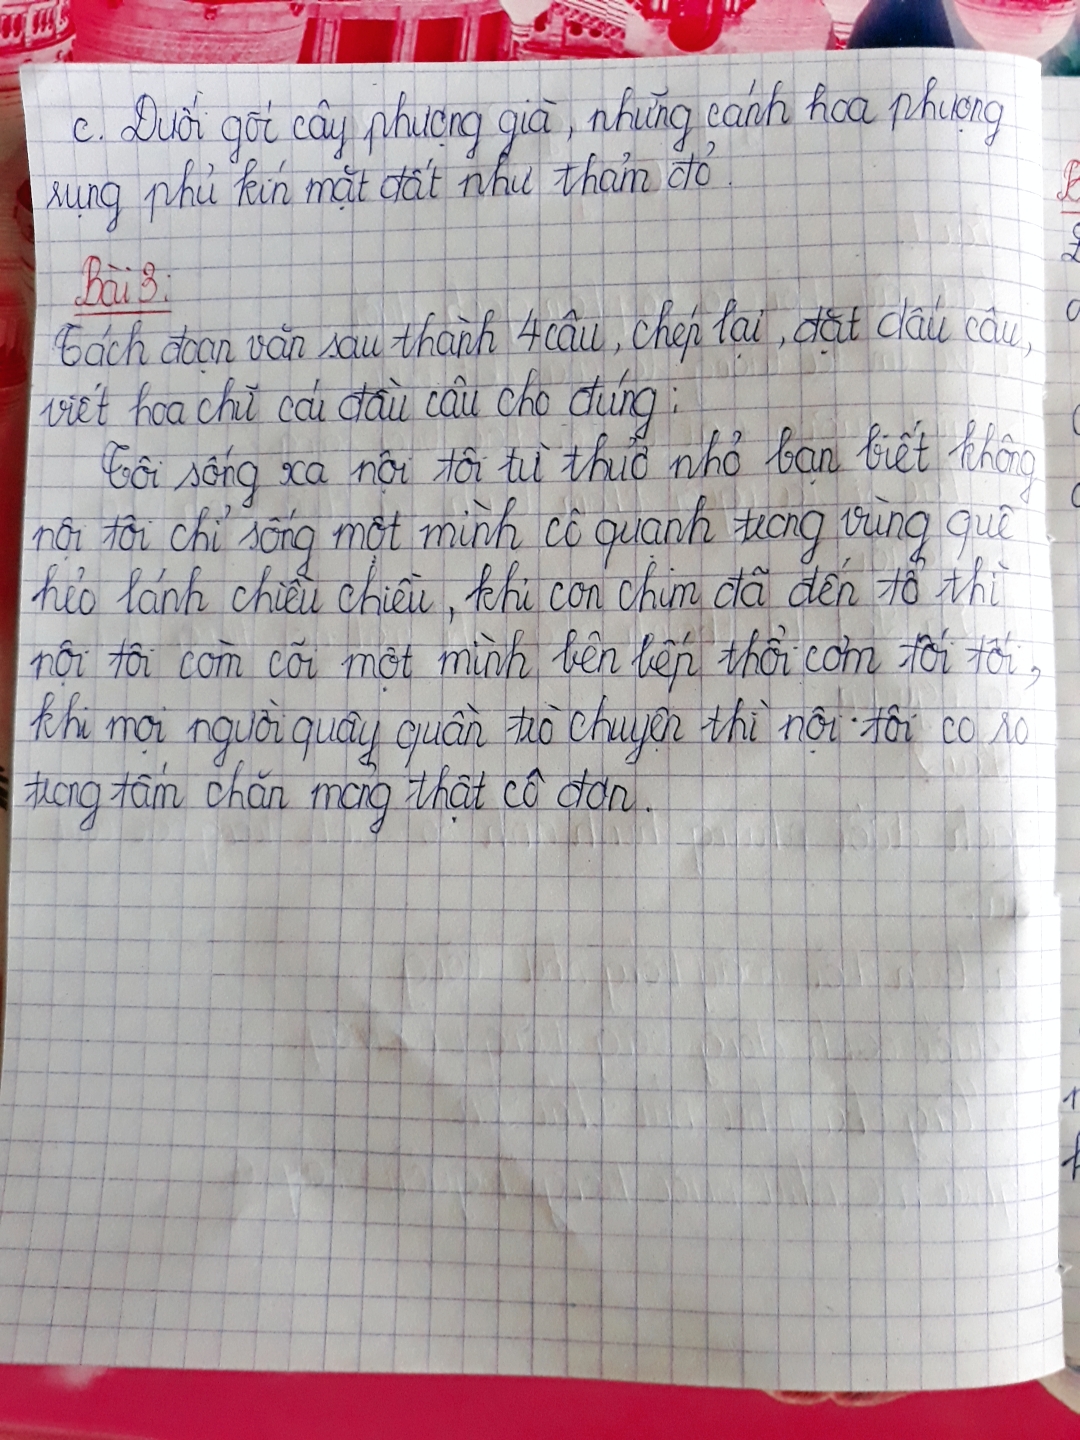 c. Dưới gốc cây phượng già, những cánh hoa phượng
rụng phủ kín mặt đất như thảm đỏ.
Bài 3:
Tách đoạn văn sau thành 4 câu, chép lại, đặt dấu câu,
viết hoa chữ cái đầu câu cho đúng:
Tôi sống xa nội tôi từ thuở nhỏ bạn biết không
nội tôi chỉ sống một mình cô quạnh trong vùng quê
hẻo lánh chiều chiều, khi con chim đã đến tổ thì
nội tôi còm cõi một mình bên bếp thổi cơm tối tối,
khi mọi người quây quần trò chuyện thì nội tôi co ro
trong tấm chăn mỏng thật cô đơn.